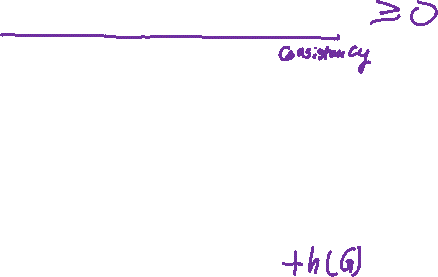 ≥0
consistancy
+h(G)